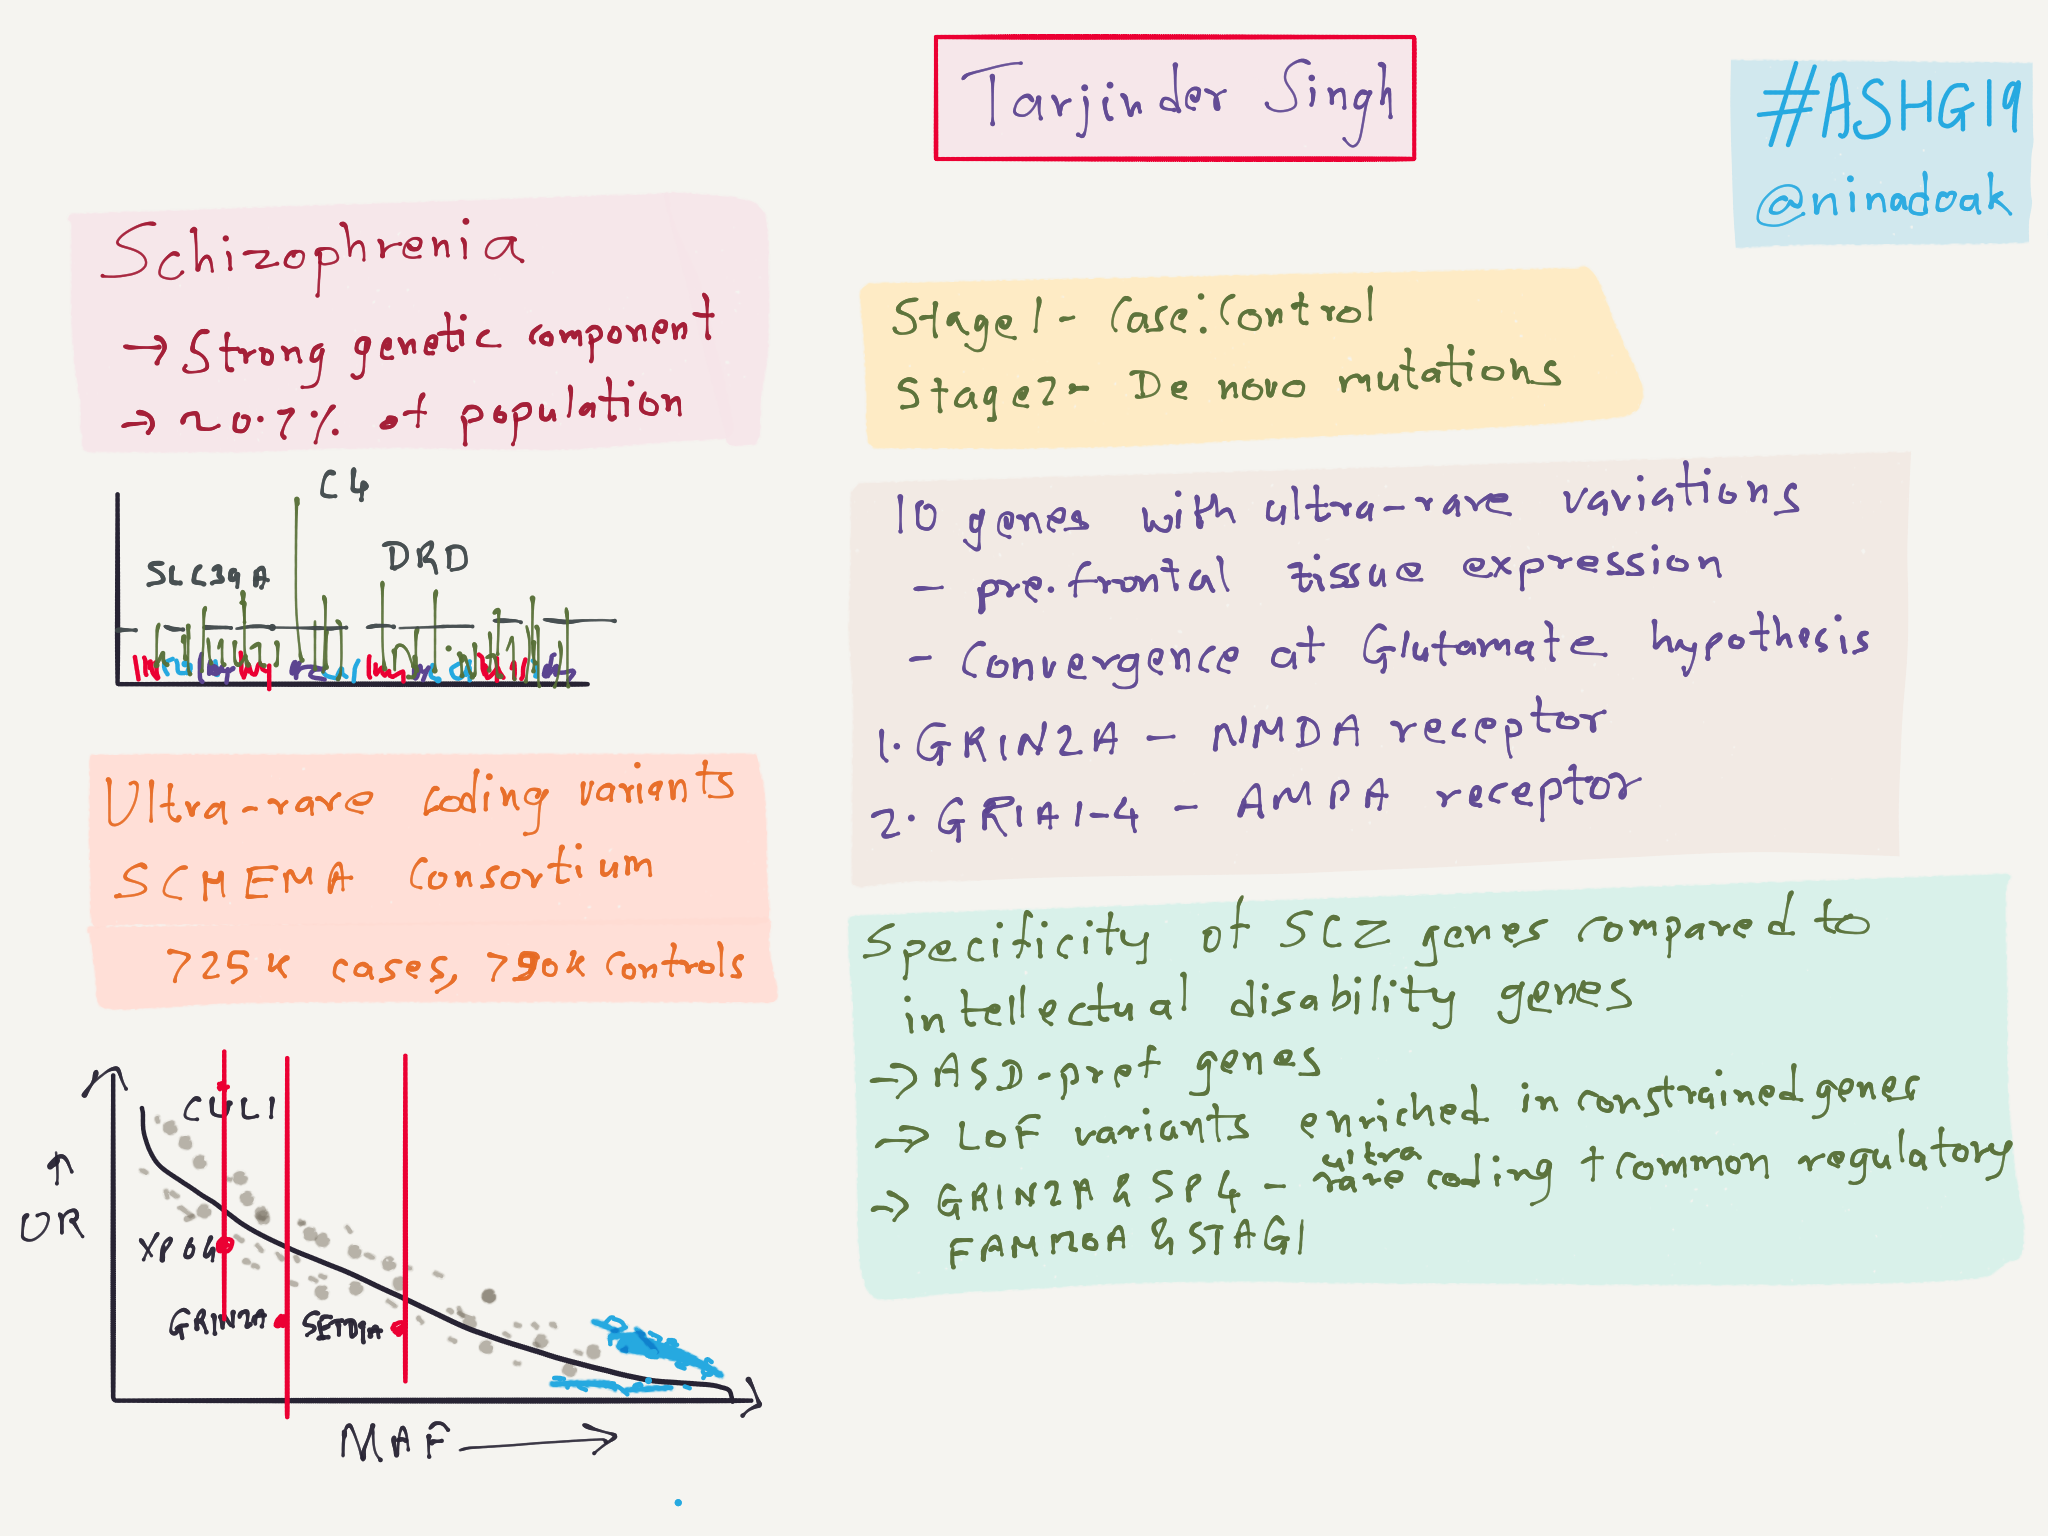 Tarjinder Singh
#ASHG19
@ninadoak
Schizophrenia
→ Strong genetic component
→ ~0.7% of population
C4
SLC39A
DRD
Ultra-rare coding variants
SCHEMA Consortium
>25K cases, >90K controls
CUL1
XPO4
GRIN2A
SETD1A
↑
OR
MAF →
Stage 1 - Case:Control
Stage 2 - De novo mutations
10 genes with ultra-rare variations
- pre.frontal tissue expression
- Convergence at Glutamate hypothesis
1. GRIN2A - NMDA receptor
2. GRIA1-4 - AMPA receptor
Specificity of SCZ genes compared to
intellectual disability genes
→ ASD-pref genes
→ LoF variants enriched in constrained genes
→ GRIN2A & SP4 - ultra rare coding + common regulatory
FAM120A & STAG1